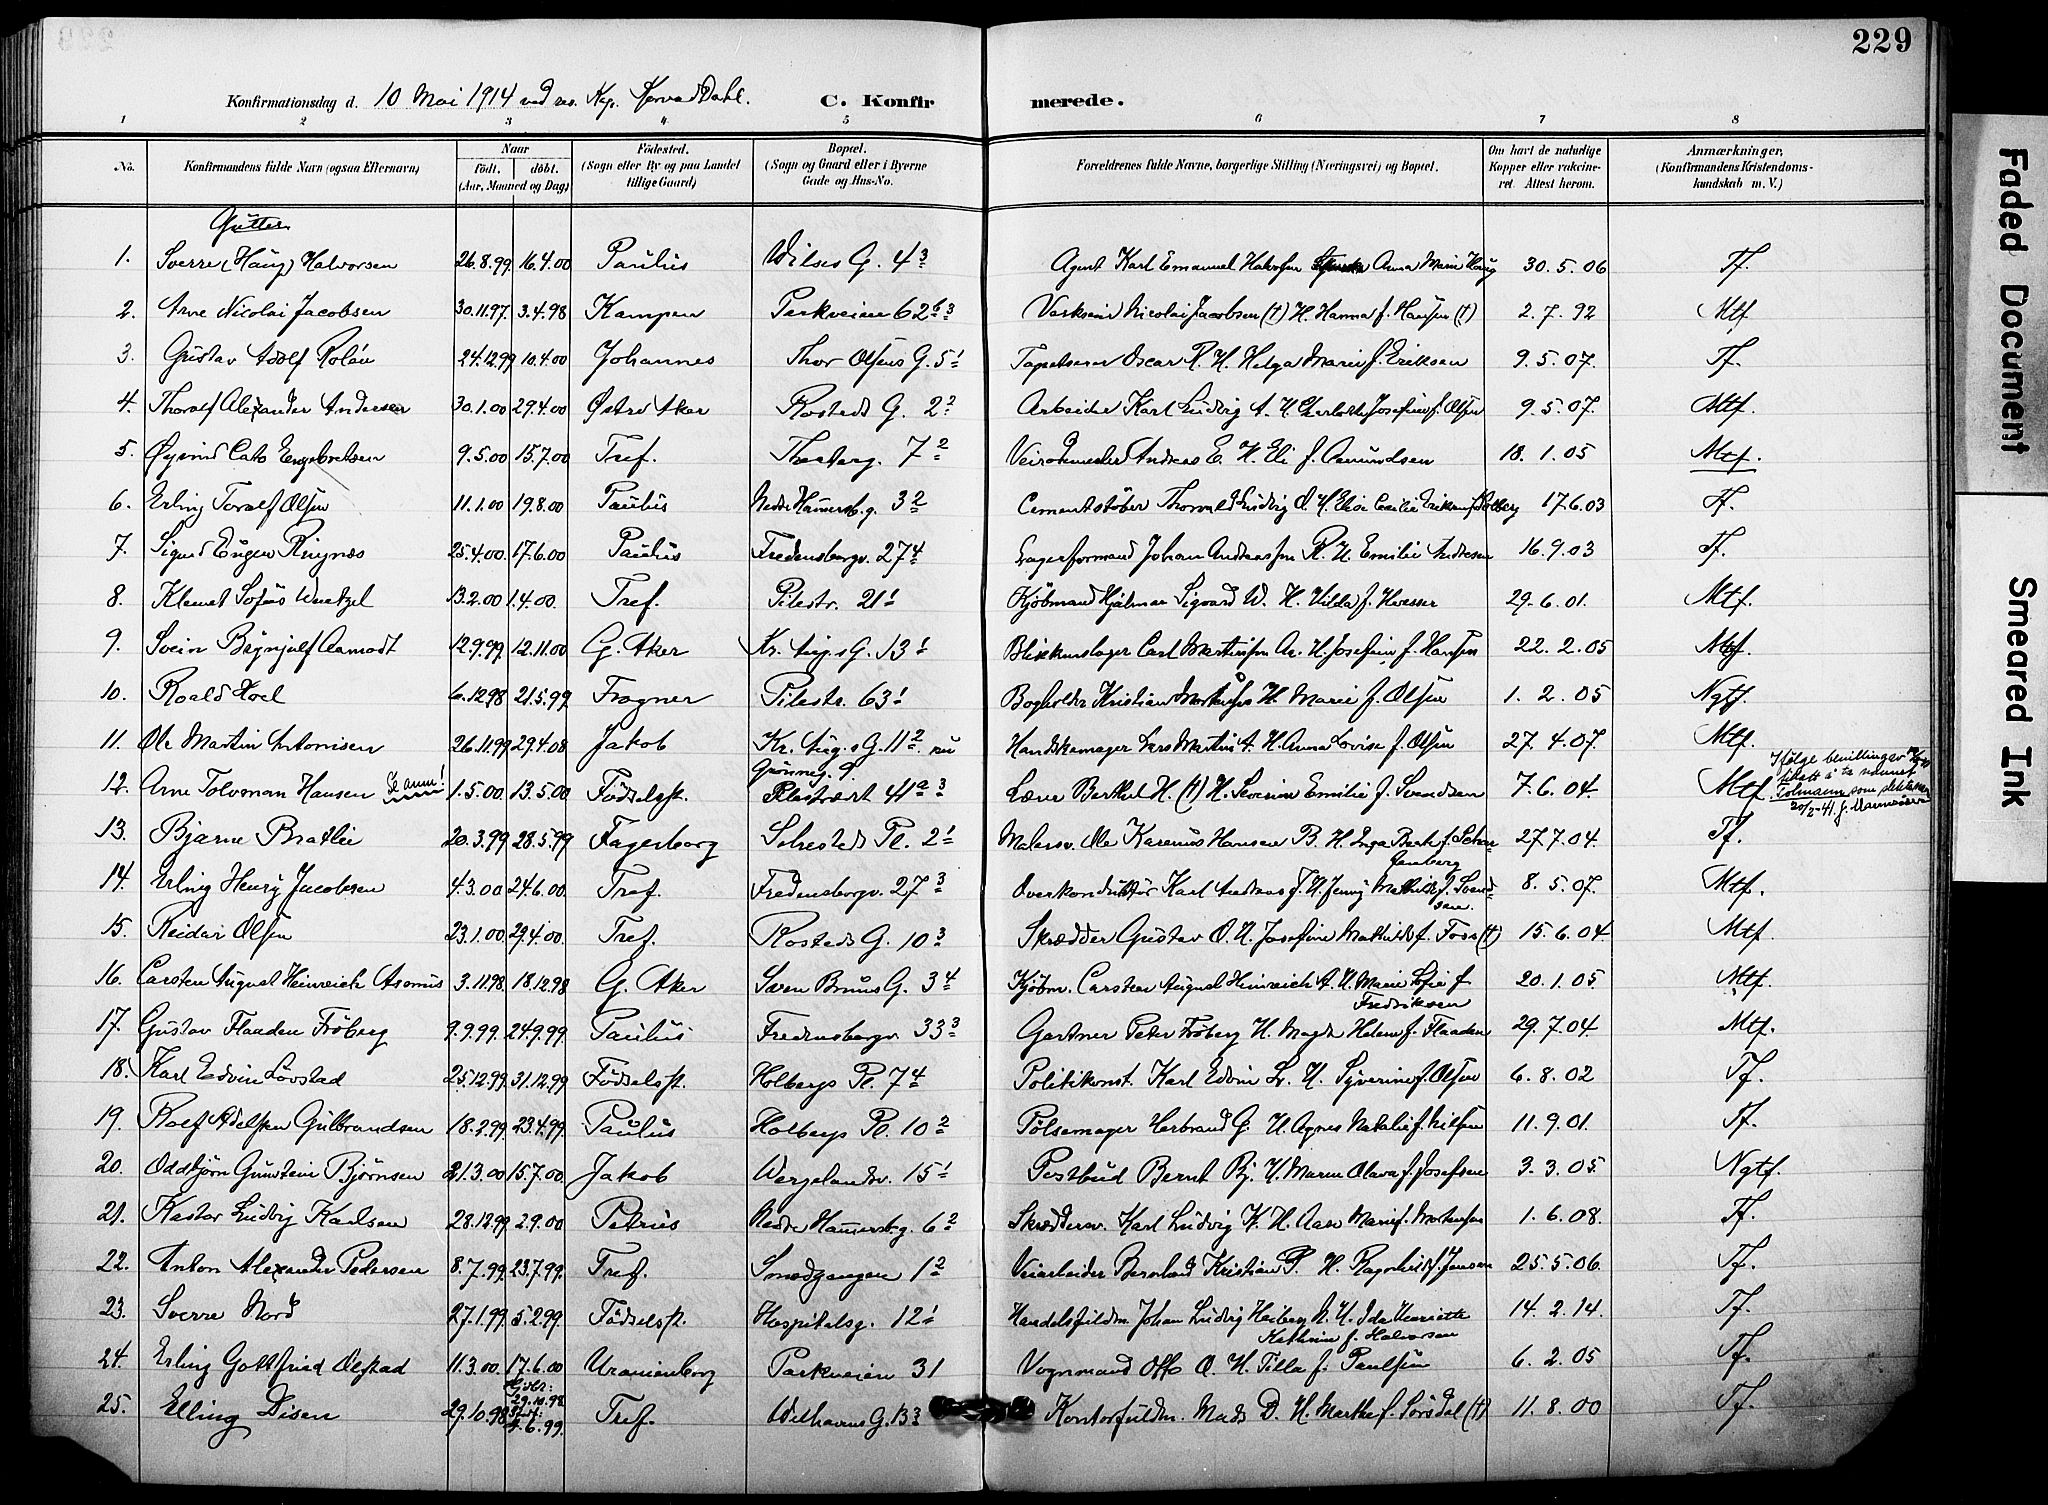 229
Konfirmationsdag d. 10 Mai 1914 ved res. Kap. Dahl.
C. Konfirmerede.
1 2 3 4 5 6 7 8
No.
Konfirmandens fulde Navn (ogsaa Efternavn)
Naar
født. døbt.
(Aar, Maaned og Dag)
Födested.
(Sogn eller By og paa Landet
tillige Gaard)
Bopæl.
(Sogn og Gaard eller i Byerne
Gade og Hus-No.
Forældrenes fulde Navne, borgerlige Stilling (Næringsvei) og Bopæl.
Om havt de naturlige
Kopper eller vakcine-
ret. Attest herom.
Anmærkninger,
(Konfirmandens Kristendoms-
kundskab m. V.)
Gutter
1. Sverre (Haug) Halvorsen 26.8.99 16.4.00 Paulus Wilses G. 4 3 Agent Karl Emanuel Halvorsen Anna Marie Haug 30.5.06 Tf.
2. Arne Nicolai Jacobsen 30.11.97. 3.4.98 Kampen Parkveien 62 b 3 Nicolai Jacobsen (†) H. Hanna f. Hansen (†) 2.7.92 Mtf
3. Gustav Adolf Rolén 24.12.99 10.4.00 Johannes Thor Olsens G. 5 1 Tapetserer Oscar R. H. Helga Marie f. Eriksen 9.5.07. Tf.
4. Thoralf Alexander Andersen 30.1.00 29.4.00 Østre Aker Rosteds G. 2 2 Arbeider Karl Ludvig A. H. Charlotte Josefine f. Olsen 9.5.07. Mtf.
5. Øyvind Cato Engebretsen 9.5.00 15.7.00 Tref. 7 2 Andreas E. H. Eli f. Amundsen 18.1.05 Mtf.
6. Erling Toralf Olsen 11.1.00 19.8.00 Paulus Nedre Hammersb.g. 3 2 Cementstöber Thorvald Ludvig O. H. Elise Cecilie 17.6.03 Tf.
7. Sigurd Eugen Ringnæs 25.4.00 17.6.00 Paulus Fredensborgv. 27 4 Lagerformand Johan Andreassen R. H. Emilie Andresen 16.9.03 Tf.
8. Klemet Sofus Wentzel 13.2.00 1.4.00. Tref. Pilestr. 21 1 Kjöbmand Hjalmar Sigvard W. H. Hilda f. 29.6.01. Mtf.
9. Svein Brynjulf Aamodt 12.9.99 12.11.00 G. Aker Kr. Aug.s G. 13 1 Blikkenslager Carl Martinsen Aa. H. Josefine f. Hansen 22.2.05 Mtf.
10. Roald Hoel 6.12.98 21.5.99 Frogner Pilestr. 63 1 Bogholder Kristian Mortensen H. Marie f. Olsen 1.2.05 Ngtf.
11. Ole Martin Antonisen 26.11.99 29.4.08 Jakob Kr. Aug.s G. 11 2 nu Handskemager Lars Martin A. H. Anna Lovise f. Olsen 27.4.07. Mtf.
Grönneg. 9
12. Arne Tolvman Hansen Se anm! 1.5.00 13.5.00 Födselsst. Pilestrædet 41 a 3 Lærer Berthel H. (†) H. Severine Emilie f. Svendsen 7.6.04. Mtf
Ifølge bevilling av
tillatt å ta navnet
Tolmann som slektsnavn
20/2-41.
13. Bjarne Bratlie 20.3.99 28.5.99 Fagerborg Sehesteds Pl. 2 1 Malersv. Ole Karenus Hansen B. H. Inga 27.7.04. Tf.
14. Erling Henry Jacobsen 4.3.00 24.6.00. Tref. Fredensborgv. 27 3 Overkonduktör Karl Andreas J. H. Jenny Mathilde f. Svend- 8.5.07. Mtf.
sen.
15. Reidar Olsen 23.1.00 29.4.00. Tref. Rosteds G. 10 3 Skrædder Gustav O. H. Josefine Mathilde f. Foss (†) 15.6.04. Mtf.
16. Carsten August Heinreich Asmus 3.11.98. 18.12.98 G. Aker Søren Bruus G. 3 4 Kjöbm. Carsten August Heinreich A. H. Marie Sofie f. 20.1.05. Mtf.
Fredriksen
17. Gustav Flaaden Fröberg 9.9.99. 24.9.99. Paulus Fredensborgv. 33 3 Gartner Peter Fröberg H. Magda Helene f. Flaaden 29.7.04. Mtf.
18. Karl Edvin Lövstad 25.12.99. 31.12.99 Födselsst. Holbergs Pl. 7 4 Politikonst. Karl Edvin L. H. Syverine f. Olsen 6.8.02 Tf.
19. Rolf Adelsten Gulbrandsen 18.2.99. 23.4.99. Paulus Holbergs Pl. 10 2 Pölsemager Herbrand G. H. Agnes Natalie f. Nilsen 11.9.01. Tf.
20. Oddbjörn Gunstein Björnsen 21.3.00 15.7.00 Jakob Wergelandsv. 15 1 Postbud Bernt Bj. H. Maren Olava f. Josefsen 3.3.05 Ngtf.
21. Kastor Ludvig Karlsen 28.12.99 2.9.00 Petrus Nedre Hammersb.g. 6 2 Skræddersv. Karl Ludvig K. H. Aase Marie f. Mortensen 1.6.08. Tf.
22. Anton Alexander Pedersen 8.7.99. 23.7.99. Tref. Smedgangen 1 2 Veiarbeider Bernhard Kristian P. H. Ragnhild f. Jensen 25.5.06. Tf.
23. Sverre Nord 27.1.99 5.2.99. Födselsst. Hospitalsg. 12 1 Handelsfuldm. Johan Ludvig Heiberg N. H. Ida Henriette 14.2.14. Tf.
Kathrine f. Halvorsen
24. Erling Gottfried Ölstad 11.3.00. 17.6.00 Uranienborg Parkveien 31 Vognmand Otto O. H. Tilla f. Paulsen 6.2.05 Tf.
25. Elling Disen 29.10.98 Hjdbt: 29.10.98 Stadf: 4.6.99. Tref. Welhavens G. 13 3 Kontorfuldm. Mads D. H. Marthe f. Sörsdal (†) 11.8.00 Tf.
Faded Document
Smeared Ink